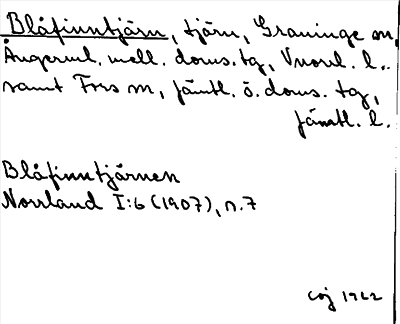 Blåfinntjärn, tjärn, Graninge sn,
Ångerml. mell. doms. tg, Vnorrl. l.
samt Fors sn, Jämtl. ö. doms. tg,
Jämtl. l.
Blåfinntjärnen
Norrland I:6 (1907), s. 7
1922